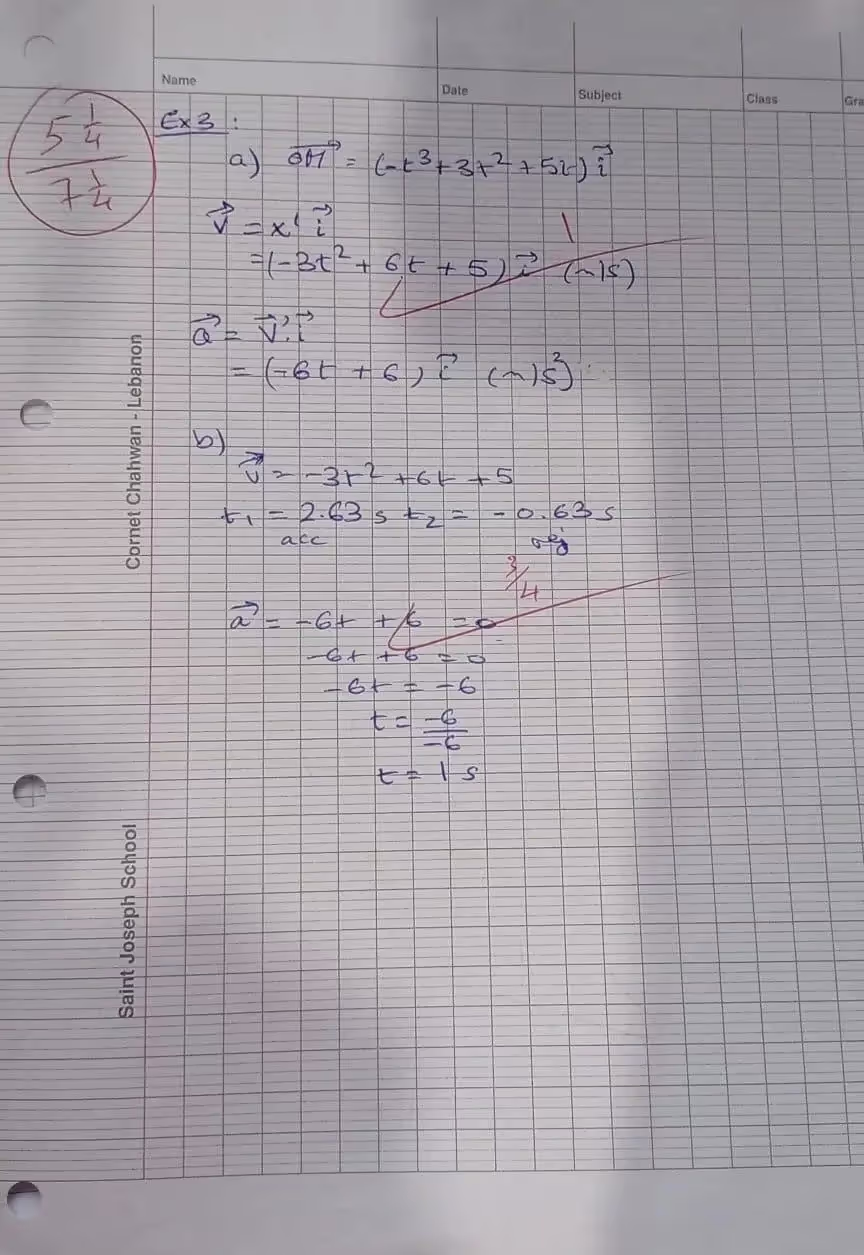 Name Date Subject Class Gra
5 1/4
7 1/4
Ex 3 :
a) OM⃗ = (-t³ + 3t² + 5t) i⃗
V⃗ = x' i⃗
1
= (-3t² + 6t + 5) i⃗ (m/s)
a⃗ = V⃗'. i⃗
= (-6t + 6) i⃗ (m/s²)
b)
v⃗ = -3t² + 6t + 5
t₁ = 2.63 s t₂ = -0.63 s
acc rej
3/4
a⃗ = -6t + 6 = 0
-6t + 6 = 0
-6t = -6
t = -6/-6
t = 1 s
Cornet Chahwan - Lebanon
Saint Joseph School